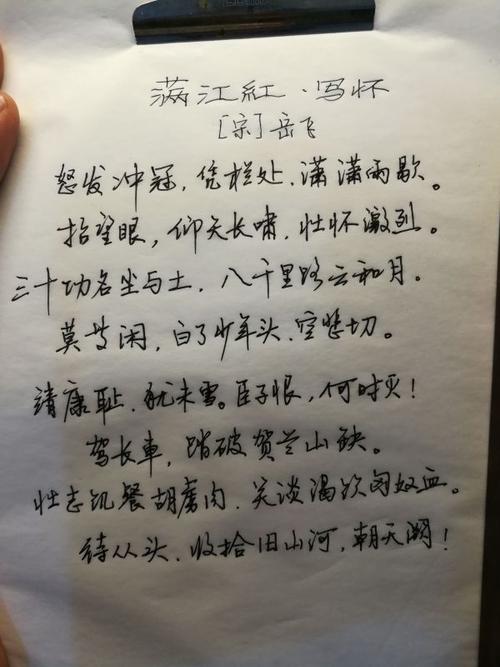 满江紅·写怀
[宗]岳飞
怒发冲冠,凭栏处、潇潇雨歇。
抬望眼,仰天长啸,壮怀激烈。
三十功名尘与土,八千里路云和月。
莫等闲,白了少年头、空悲切。
靖康耻,犹未雪。臣子恨,何时灭!
驾长車,踏破贺兰山缺。
壮志饥餐胡虏肉,笑谈渴饮匈奴血。
待从头、收拾旧山河,朝天阙!